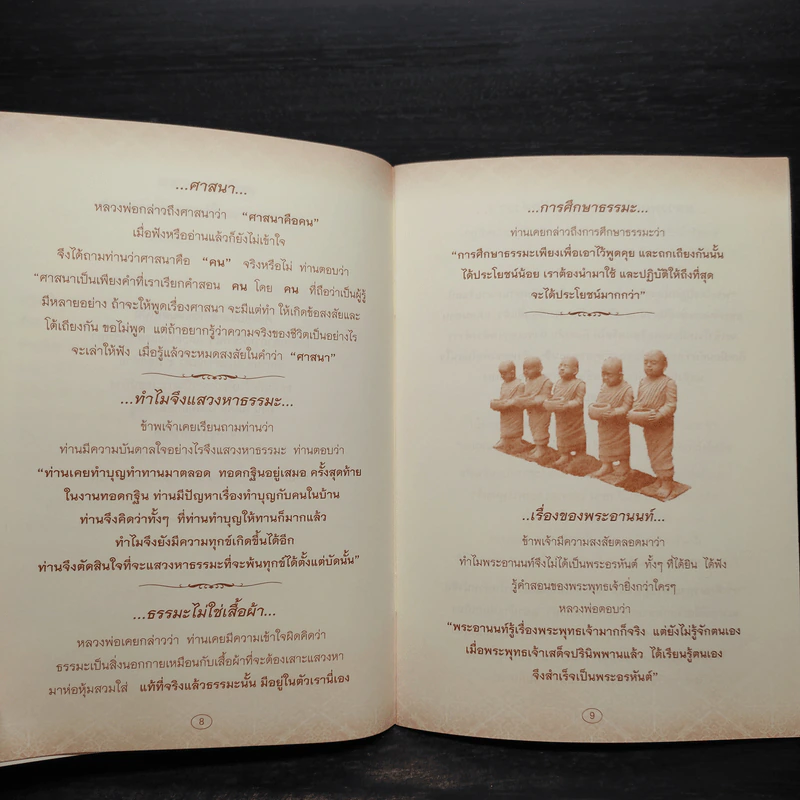 ...ศาสนา...
หลวงพ่อกล่าวถึงศาสนาว่า “ศาสนาคือคน”
เมื่อฟังหรืออ่านแล้วก็ยังไม่เข้าใจ
จึงได้ถามท่านว่าศาสนาคือ “คน” จริงหรือไม่ ท่านตอบว่า
“ศาสนาเป็นเพียงคำที่เราเรียกคำสอน คน โดย คน ที่ถือว่าเป็นผู้รู้
มีหลายอย่าง ถ้าจะให้พูดเรื่องศาสนา จะมีแต่ทำ ให้เกิดข้อสงสัยและ
โต้เถียงกัน ขอไม่พูด แต่ถ้าอยากรู้ว่าความจริงของชีวิตเป็นอย่างไร
จะเล่าให้ฟัง เมื่อรู้แล้วจะหมดสงสัยในคำว่า “ศาสนา”
...ทำไมจึงแสวงหาธรรมะ...
ข้าพเจ้าเคยเรียนถามท่านว่า
ท่านมีความบันดาลใจอย่างไรจึงแสวงหาธรรมะ ท่านตอบว่า
“ท่านเคยทำบุญทำทานมาตลอด ทอดกฐินอยู่เสมอ ครั้งสุดท้าย
ในงานทอดกฐิน ท่านมีปัญหาเรื่องทำบุญกับคนในบ้าน
ท่านจึงคิดว่าทั้งๆ ที่ท่านทำบุญให้ทานก็มากแล้ว
ทำไมจึงยังมีความทุกข์เกิดขึ้นได้อีก
ท่านจึงตัดสินใจที่จะแสวงหาธรรมะที่จะพ้นทุกข์ได้ตั้งแต่บัดนั้น”
...ธรรมะไม่ใช่เสื้อผ้า...
หลวงพ่อเคยกล่าวว่า ท่านเคยมีความเข้าใจผิดคิดว่า
ธรรมะเป็นสิ่งนอกกายเหมือนกับเสื้อผ้าที่จะต้องเสาะแสวงหา
มาห่อหุ้มสวมใส่ แท้ที่จริงแล้วธรรมะนั้น มีอยู่ในตัวเรานี่เอง
8
...การศึกษาธรรมะ...
ท่านเคยกล่าวถึงการศึกษาธรรมะว่า
“การศึกษาธรรมะเพียงเพื่อเอาไว้พูดคุย และถกเถียงกันนั้น
ได้ประโยชน์น้อย เราต้องนำมาใช้ และปฏิบัติให้ถึงที่สุด
จะได้ประโยชน์มากกว่า”
..เรื่องของพระอานนท์...
ข้าพเจ้ามีความสงสัยตลอดมาว่า
ทำไมพระอานนท์จึงไม่ได้เป็นพระอรหันต์ ทั้งๆ ที่ได้ยิน ได้ฟัง
รู้คำสอนของพระพุทธเจ้ายิ่งกว่าใครๆ
หลวงพ่อตอบว่า
“พระอานนท์รู้เรื่องพระพุทธเจ้ามากก็จริง แต่ยังไม่รู้จักตนเอง
เมื่อพระพุทธเจ้าเสด็จปรินิพพานแล้ว ได้เรียนรู้ตนเอง
จึงสำเร็จเป็นพระอรหันต์”
9